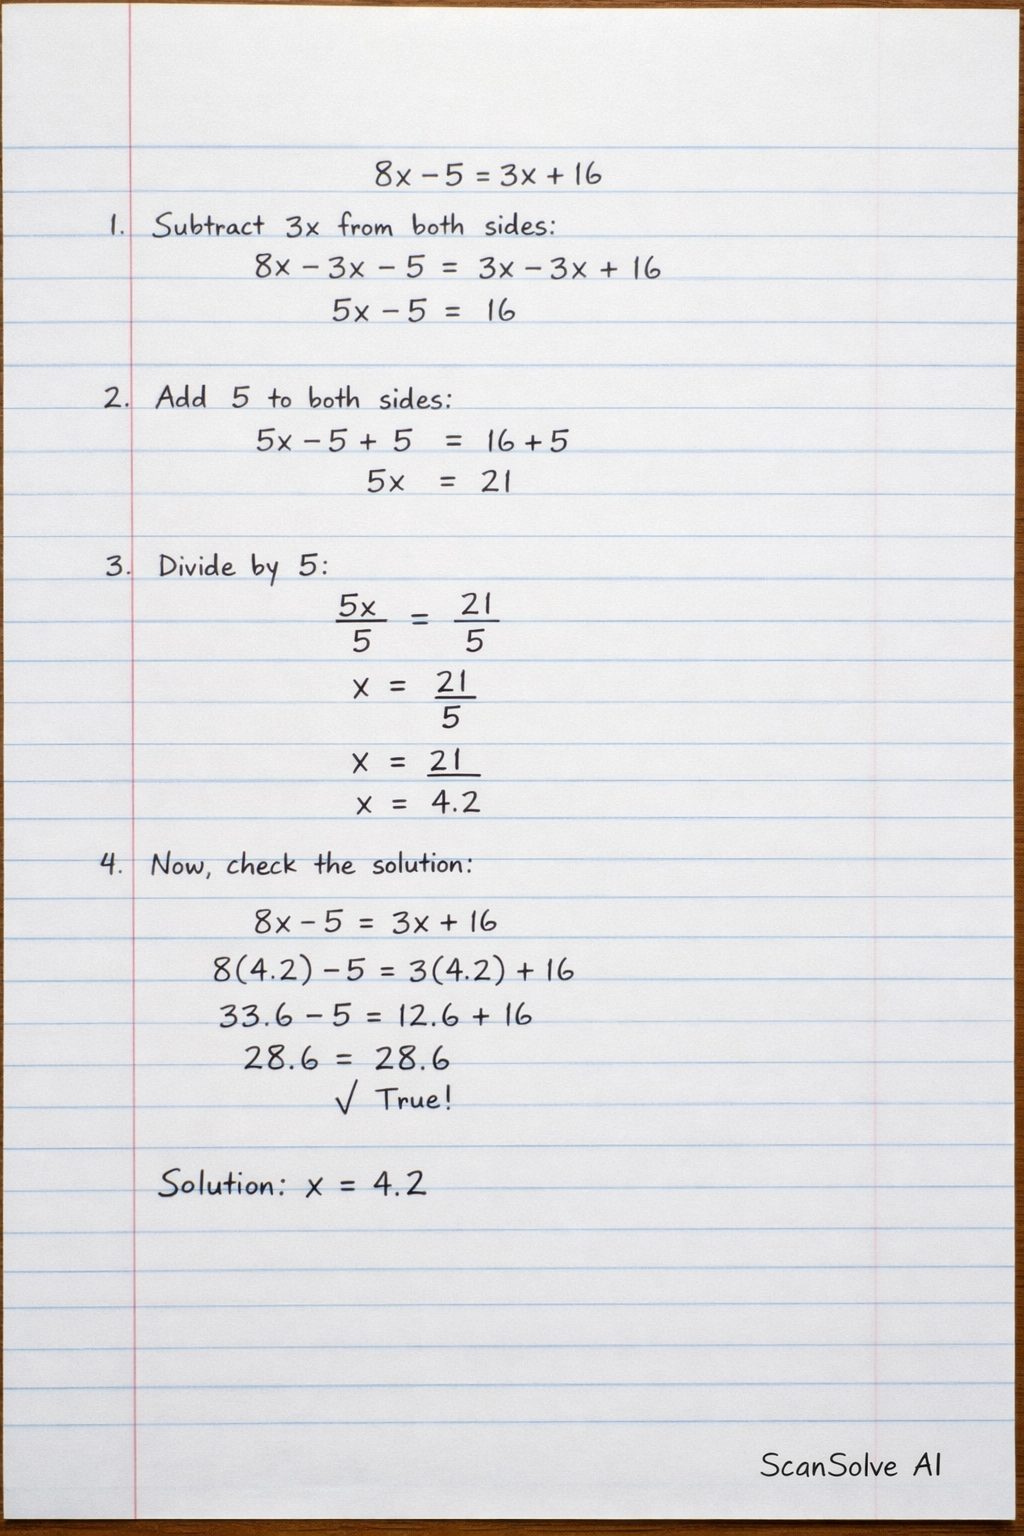 8x - 5 = 3x + 16
1. Subtract 3x from both sides:
8x - 3x - 5 = 3x - 3x + 16
5x - 5 = 16
2. Add 5 to both sides:
5x - 5 + 5 = 16 + 5
5x = 21
3. Divide by 5:
5x/5 = 21/5
x = 21/5
x = 21
x = 4.2
4. Now, check the solution:
8x - 5 = 3x + 16
8(4.2) - 5 = 3(4.2) + 16
33.6 - 5 = 12.6 + 16
28.6 = 28.6
√ True!
Solution: x = 4.2
ScanSolve AI